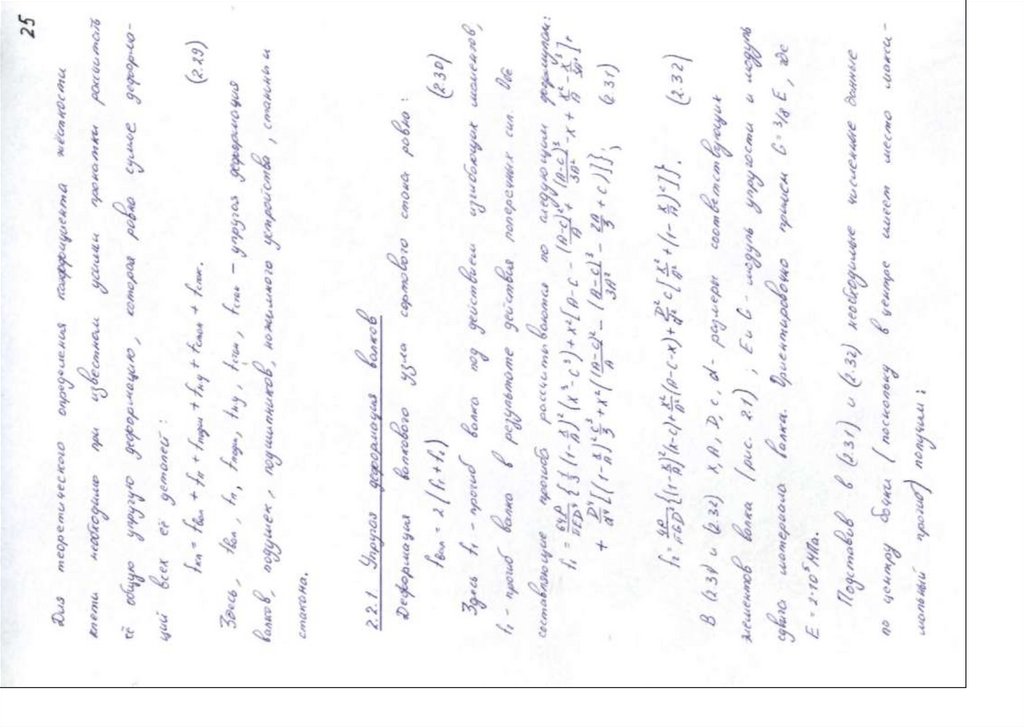 25
Для теоретического определения коэффициента жёсткости
клети необходимо при известном усилии прокатки рассчитать
её общую упругую деформацию, которая равна сумме деформа-
ций всех её деталей:
fкл = fвал + fп + fподш + fну + fстан + fстак. (2.29)
Здесь, fвал, fп, fподш, fну, fстан, fстак – упругая деформация
валков, подушек, подшипников, нажимного устройства, станины и
стакана.
2.2.1. Упругая деформация валков
Деформация валкового узла сортового стана равна:
fвал = 2(f1+f2) (2.30)
Здесь f1 – прогиб валка под действием изгибающих моментов,
f2 – прогиб валка в результате действия поперечных сил. Две
составляющие прогиба рассчитываются по следующим формулам:
(2.31)
(2.32)
В (2.31) и (2.32) x, A, D, c, d – размеры соответствующих
элементов валка (рис. 2.1), E и G – модуль упругости и модуль
сдвига материала валка. Ориентировочно примем G = 3/8 E, где
E = 2·10⁵ МПа.
Подставив в (2.31) и (2.32) необходимые численные данные
по центру бочки (поскольку в центре имеет место макси-
мальный прогиб) получим: